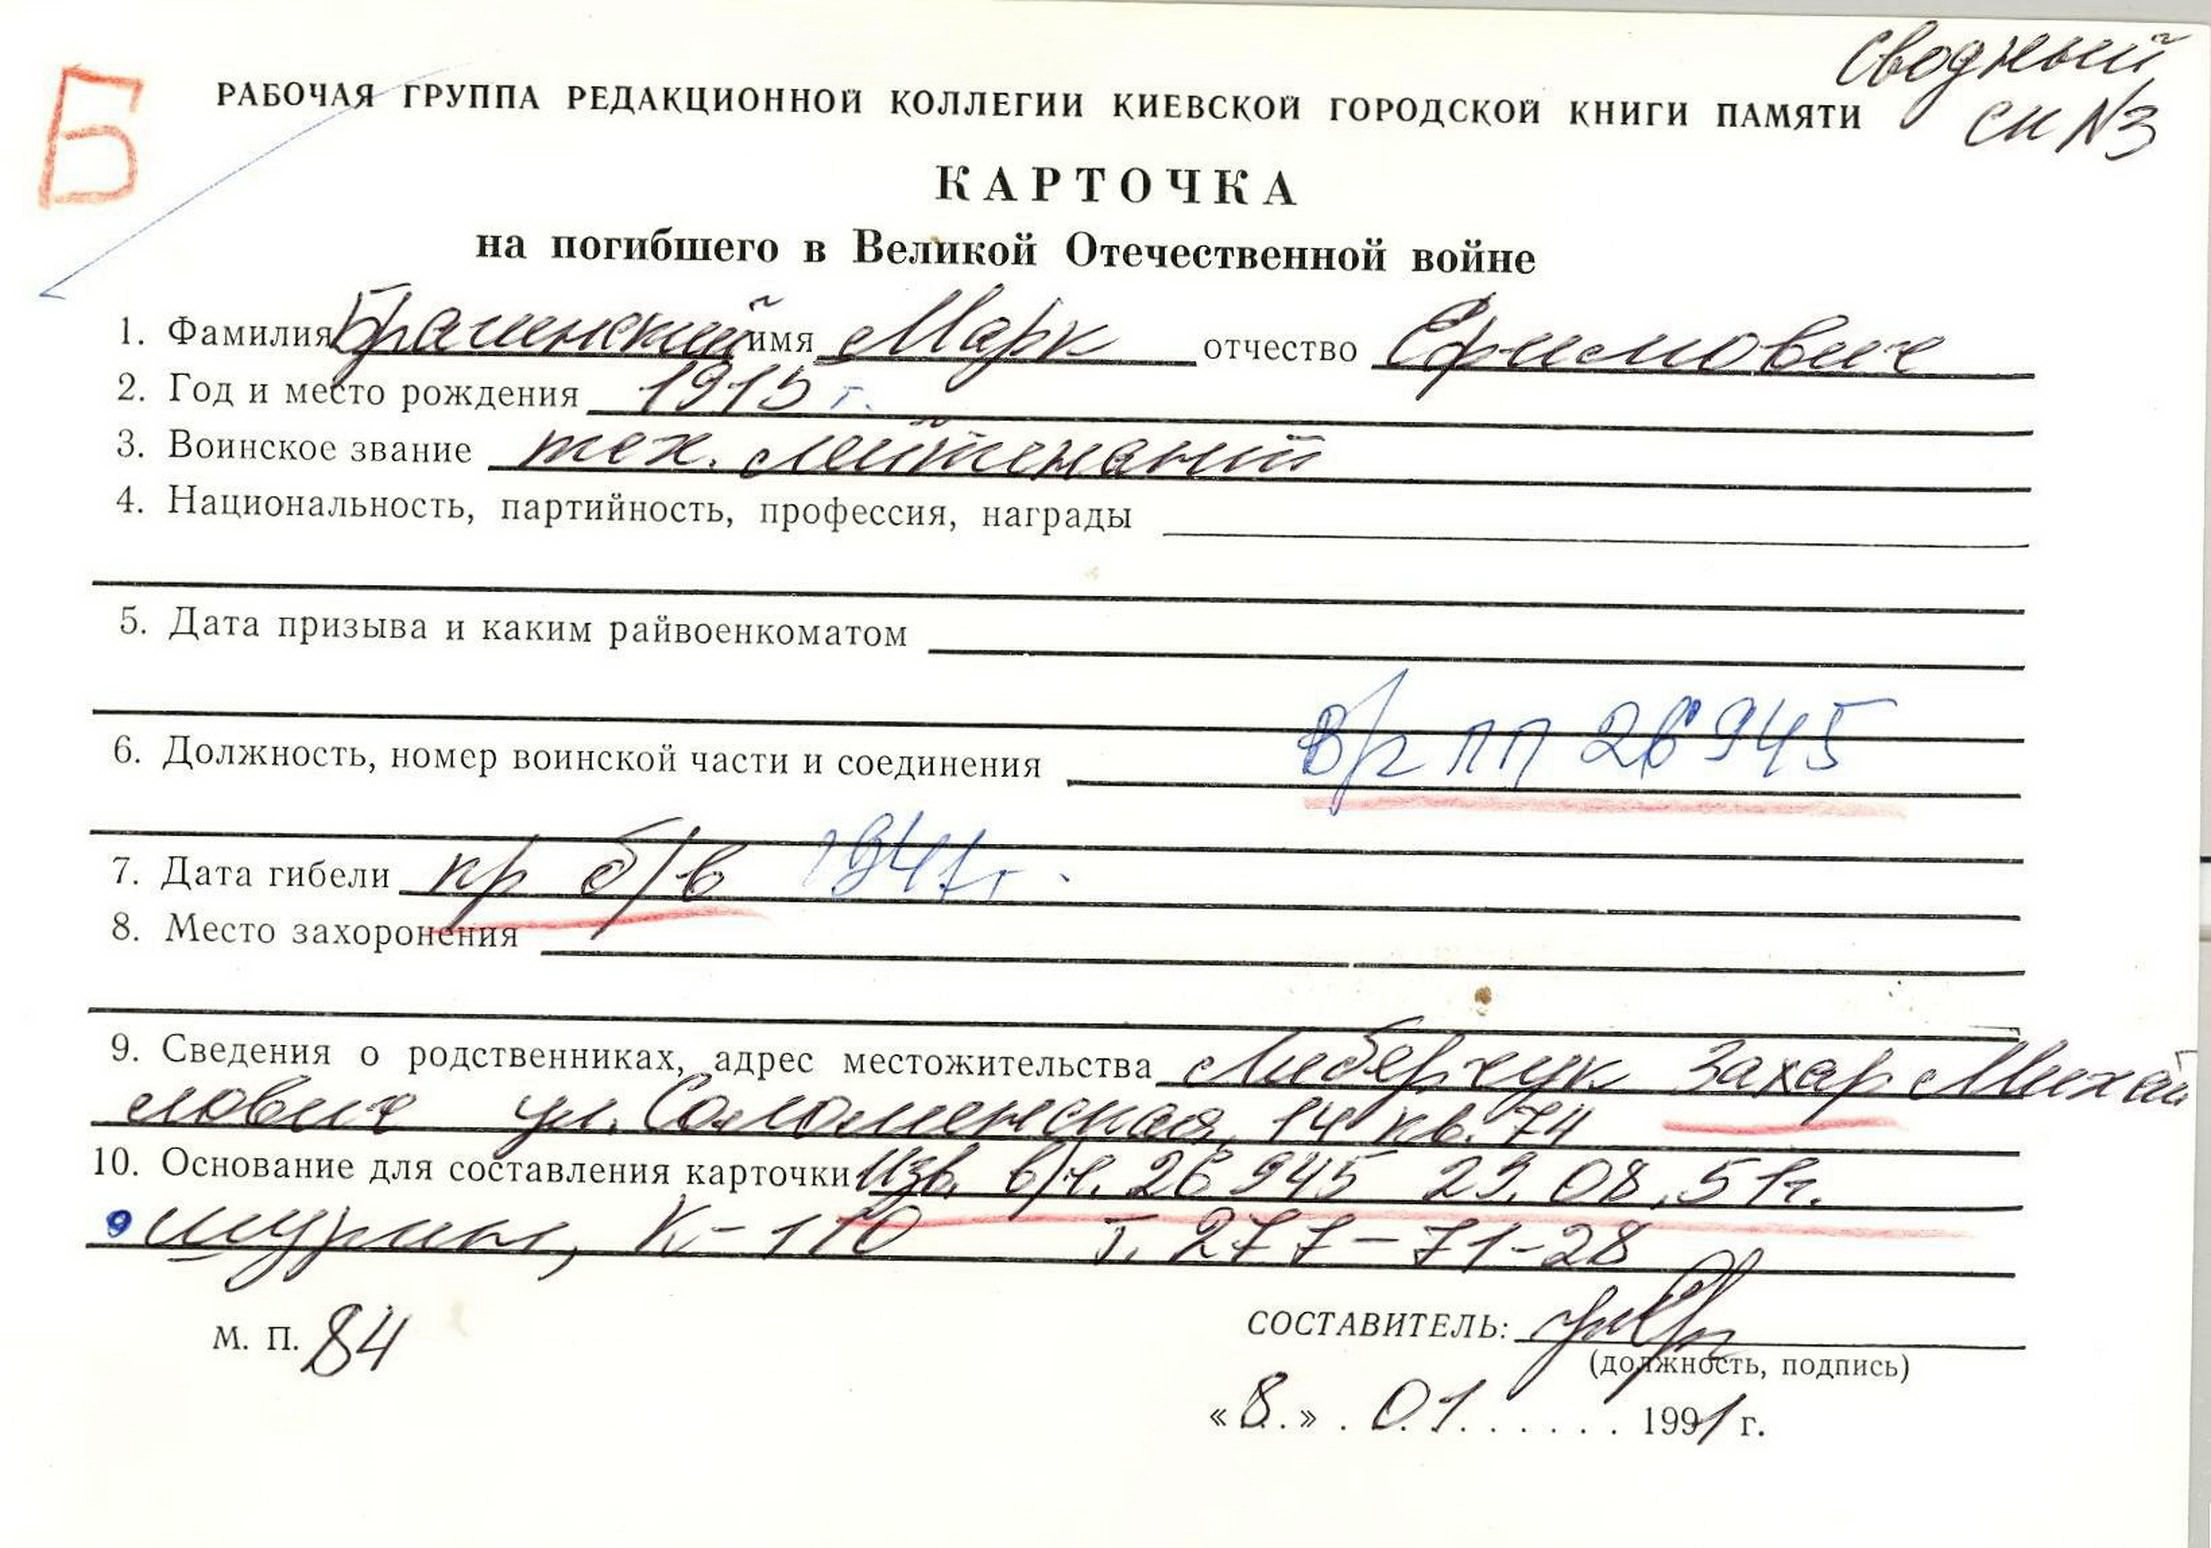 Сводный
сп N3
Б
РАБОЧАЯ ГРУППА РЕДАКЦИОННОЙ КОЛЛЕГИИ КИЕВСКОЙ ГОРОДСКОЙ КНИГИ ПАМЯТИ
КАРТОЧКА
на погибшего в Великой Отечественной войне
1. Фамилия Брагинский имя Марк отчество Ефимович
2. Год и место рождения 1915 г.
3. Воинское звание тех. лейтенант
4. Национальность, партийность, профессия, награды
5. Дата призыва и каким райвоенкоматом
6. Должность, номер воинской части и соединения в/ч ПП 26945
7. Дата гибели пр б/в 1941г.
8. Место захоронения
9. Сведения о родственниках, адрес местожительства Захар Михай
лович ул. Соломенская, 14 кв. 74
10. Основание для составления карточки Изв. в/ч. 26945 29.08.51г.
шурин, К-110 т. 277-71-28
М. П. 84
СОСТАВИТЕЛЬ:
(должность, подпись)
« 8. » . 01. . . . . . 1991 г.